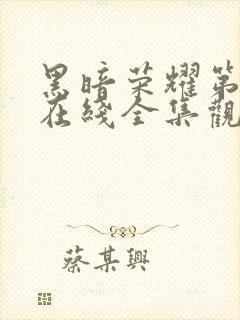 黑暗荣耀第
在綫全集觀
蔡某興